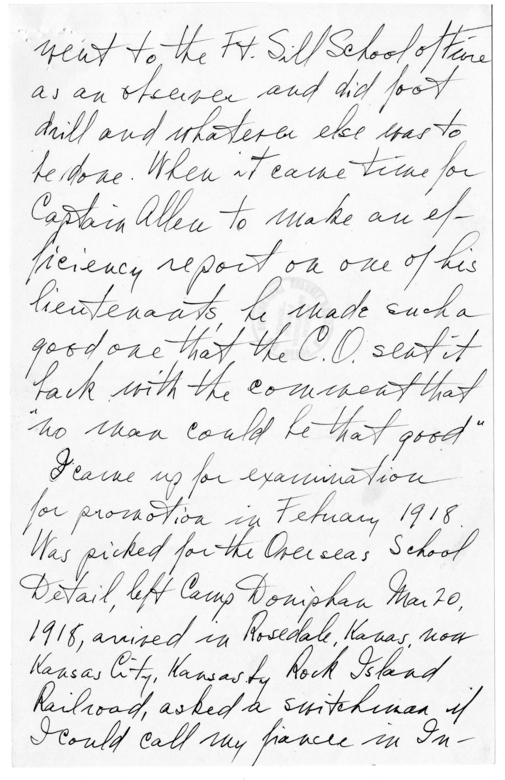 went to the Ft. Sill School of Fire
as an observer and did foot
drill and whatever else was to
be done. When it came time for
Captain Allen to make an ef-
ficiency report on one of his
lieutenants, he made such a
good one that the C.O. sent it
back with the comment that
"no man could be that good"
I came up for examination
for promotion in Febuary 1918.
Was picked for the Overseas School
Detail, left Camp Doniphan Mar 20,
1918, arrived in Rosedale, Kanas, now
Kansas City, Kansas by Rock Island
Railroad, asked a switchman if
I could call my fiancee in In-